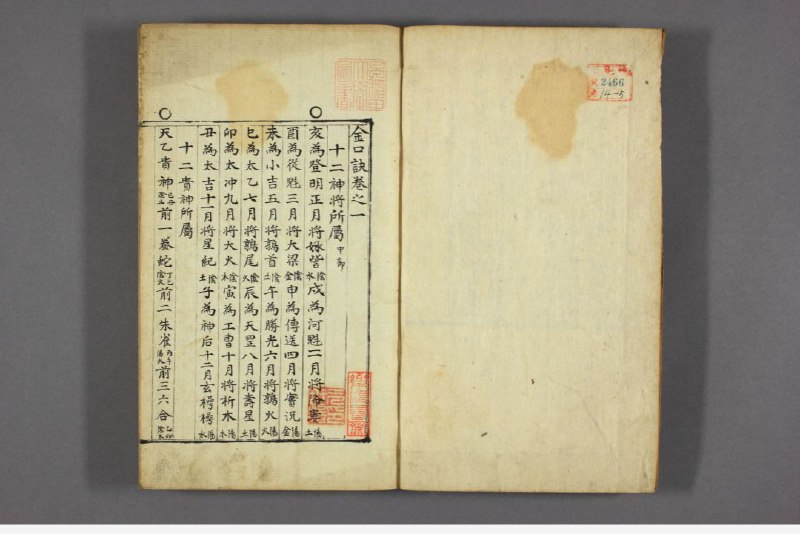 金口訣卷之一
十二神將所屬
亥為登明正月將娵訾陰水戌為河魁二月將降婁陽土
酉為從魁三月將大梁陰金申為傳送四月將實沉陽金
未為小吉五月將鶉首陰土午為勝光六月將鶉火陽火
巳為太乙七月將鶉尾陰火辰為天罡八月將壽星陽土
卯為太冲九月將大火陰木寅為工曹十月將析木陽木
丑為太吉十一月將星紀陰土子為神后十二月玄枵陽水
十二貴神所屬
天乙貴神己丑陰土前一螣蛇丁巳陰火前二朱雀丙午陽火前三六合乙卯陰木
2466
14-5